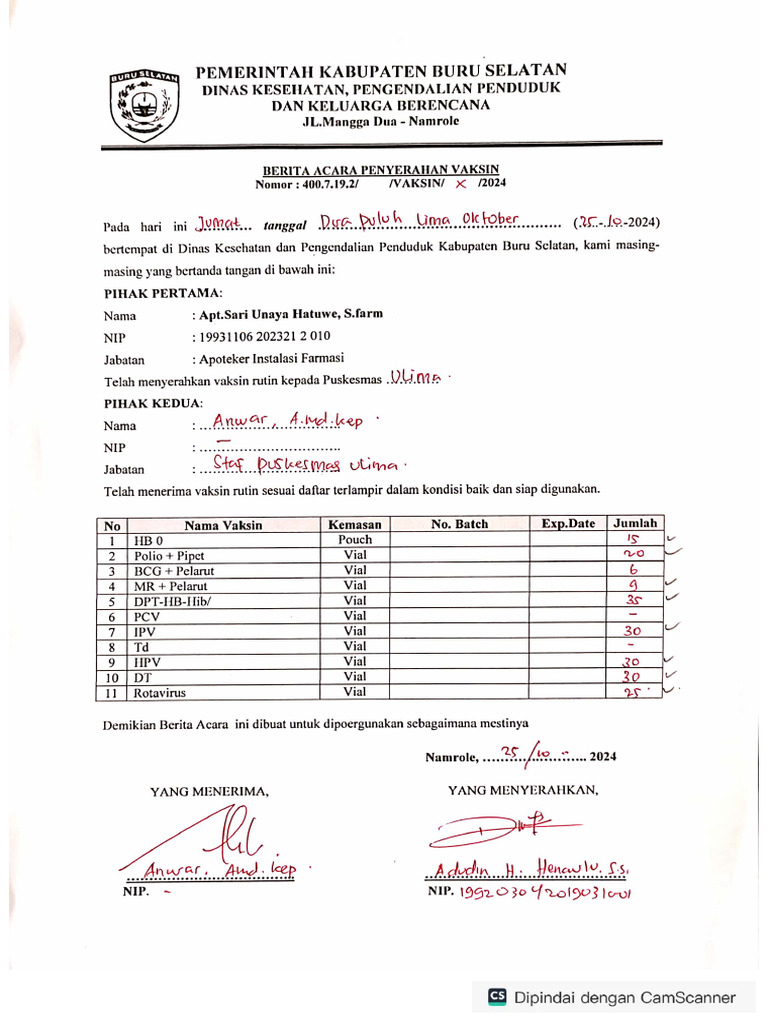 BURU SELATAN
PEMERINTAH KABUPATEN BURU SELATAN
DINAS KESEHATAN, PENGENDALIAN PENDUDUK
DAN KELUARGA BERENCANA
JL.Mangga Dua - Namrole
BERITA ACARA PENYERAHAN VAKSIN
Nomor : 400.7.19.2/ /VAKSIN/ X /2024
Pada hari ini Jumat tanggal Dua Puluh Lima Oktober (25-10-2024)
bertempat di Dinas Kesehatan dan Pengendalian Penduduk Kabupaten Buru Selatan, kami masing-
masing yang bertanda tangan di bawah ini:
PIHAK PERTAMA:
Nama : Apt.Sari Unaya Hatuwe, S.farm
NIP : 19931106 202321 2 010
Jabatan : Apoteker Instalasi Farmasi
Telah menyerahkan vaksin rutin kepada Puskesmas Ulima
PIHAK KEDUA:
Nama : Anwar, A.md.kep
NIP : –
Jabatan : Staf Puskesmas Ulima
Telah menerima vaksin rutin sesuai daftar terlampir dalam kondisi baik dan siap digunakan.
No Nama Vaksin Kemasan No. Batch Exp.Date Jumlah
1 HB 0 Pouch 15 ✓
2 Polio + Pipet Vial 20 ✓
3 BCG + Pelarut Vial 6
4 MR + Pelarut Vial 9 ✓
5 DPT-HB-Hib/ Vial 35 ✓
6 PCV Vial –
7 IPV Vial 30 ✓
8 Td Vial -
9 HPV Vial 30 ✓
10 DT Vial 30 ✓
11 Rotavirus Vial 25 ✓
Demikian Berita Acara ini dibuat untuk dipoergunakan sebagaimana mestinya
Namrole, 25/10 - 2024
YANG MENERIMA, YANG MENYERAHKAN,
Anwar, Amd.kep Adudin H. Henaulu. S.s.
NIP. - NIP. 199203042019031001
CS Dipindai dengan CamScanner